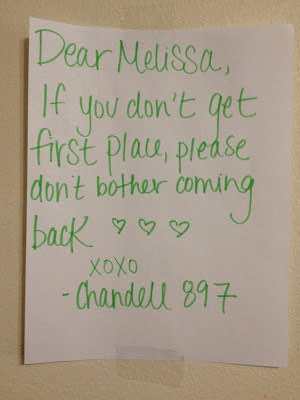 Dear Melissa,
If you don't get
first place, please
don't bother coming
back ♡ ♡ ♡
xoxo
- Chandell 897